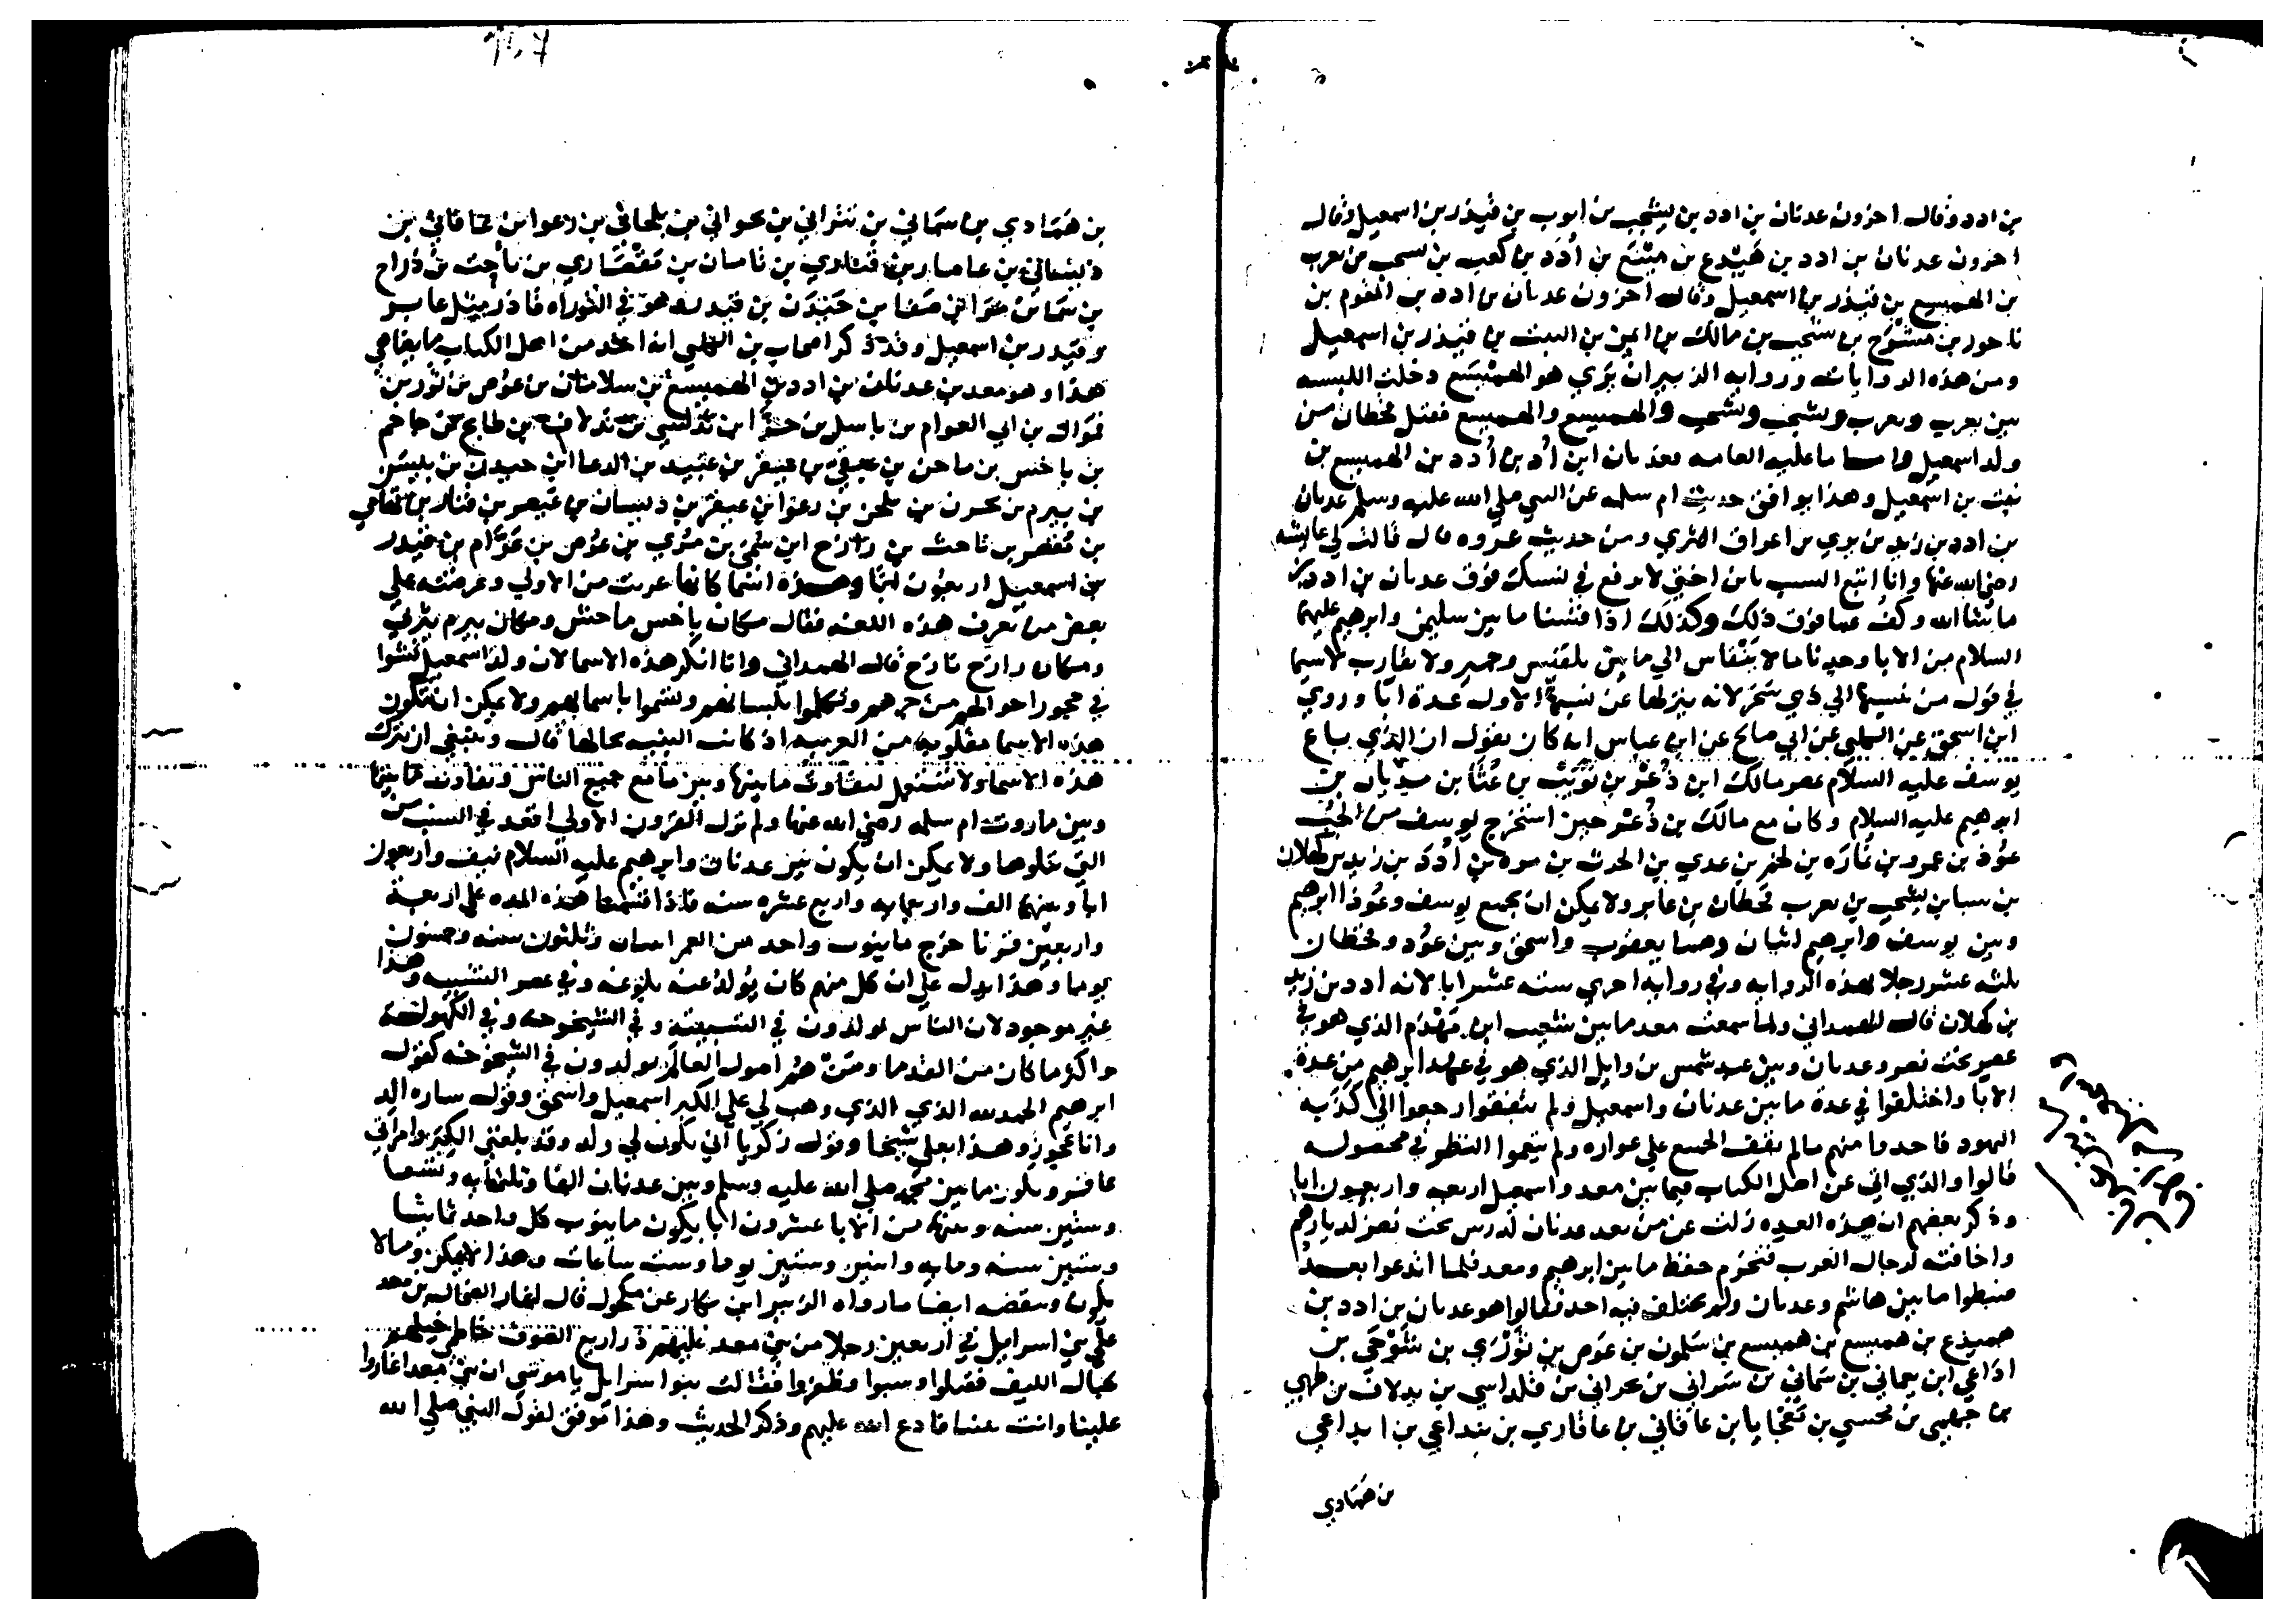 بن ادد وقال اخرون عدنان بن ادد بن يشجب بن ايوب بن قيذر بن اسمعيل وقال
اخرون عدنان بن ادد بن هميدع بن منيع بن ادد بن كعب بن يشجب بن يعرب
بن الهميسع بن قيذر بن اسمعيل وقال اخرون عدنان بن ادد بن المقوم بن
ناحور بن مشرح بن يشجب بن مالك بن ايمن بن النبت بن قيذر بن اسمعيل
ومن هذه الروايات ورواية الزبير ان بري هو الهميسع دخلت اللبسه
بين يعرب ويعرب ويشجب ويشجب والهميسع والهميسع فقيل قحطان من
ولد اسمعيل واما ما عليه العامه فعدنان ابن اد بن ادد بن الهميسع بن
نبت بن اسمعيل وهذا يوافق حديث ام سلمه عن النبي صلي الله عليه وسلم عدنان
بن ادد بن زيد بن بري بن اعراق الثري ومن حديث عروه قال قالت لي عايشه
رضي الله عنها وانا اتبع النسب يا بن اختي لا ترفع في نسبك فوق عدنان بن ادد
ما شا الله وكف عما فوق ذلك وكذلك اذا قسنا ما بين سليمن وابرهيم عليهما
السلام من الابا وجدنا ما لا يتقاس الي ما بين بلقيس وحمير ولا يقارب لا سيما
في قول من نسبها الي ذي سحر لانه ينزلها عن نسبها الاول عدة ابا وروي
ابن اسحق عن الكلبي عن ابي صالح عن ابن عباس انه كان يقول ان الذي باع
يوسف عليه السلام بمصر مالك ابن ذعر بن نويب بن عنقا بن مديان بن
ابرهيم عليه السلام وكان مع مالك بن ذعر حين استخرج يوسف من الجب
عوذ بن عمرو بن نماره بن لخم بن عدي بن الحرث بن مره بن ادد بن زيد بن كهلان
بن سبا بن يشجب بن يعرب بن قحطان بن عابر ولا يمكن ان يجمع يوسف وعوذا ابرهيم
وبين يوسف وابرهيم اثنان وهما يعقوب واسحق وبين عوذ وقحطان
ثلثه عشر رجلا بهذه الروايه وفي روايه اخري سته عشر ابا لانه ادد بن زيد
بن كهلان قال الهمداني ولما سمعت معد ما بين شعيب ابن مهدم الذي هو في
عصر بخت نصر وعدنان وبين عبد شمس بن وايل الذي هو في عهد ابرهيم من عدة
الابا واختلفوا في عدة ما بين عدنان واسمعيل ولم يتفقوا رجعوا الي كذبه
اليهود فاخذوا منهم ما لم يقف الجميع علي عواره ولم ينعموا النظر في محصوله
قالوا والذي اتي عن اهل الكتاب فيما بين معد واسمعيل اربعه واربعون ابا
وذكر بعضهم ان هذه العده زلت عن من بعد عدنان لدرس بخت نصر لديارهم
واخافته لرجال العرب فتخرم حفظ ما بين ابرهيم ومعد فلما ابذعوا بعد
ضبطوا ما بين هاشم وعدنان ولم يختلف فيه احد فقالوا هو عدنان بن ادد بن
هميدع بن هميسع بن هميسع بن سلمون بن عوص بن ثوري بن شوحي بن
اداعي ابن يماني بن سماني بن سراني بن بحراني بن فلداسي بن يدلاف بن طهي
بن جهمي بن محسي بن تفخايا بن عاقاني بن عاقاري بن بنداعي بن ابداعي
بن همادي
بن همادي بن سماني بن نثراني بن بحواني بن بلحاني بن رعوا بن عاقاني بن
بن سماس بن عوا بن صفا بن جنيدن بن قيدر وهو في التوراه
وقيدر بن اسمعيل وقد ذكر اصحاب بن الكلبي انه اخذ من اهل الكتاب ما يضاهي
هذا وهو معد بن عدنان بن ادد بن الهميسع بن سلامان بن عوص بن ثور بن
قموال بن ابي العوام بن باسل بن حرا ابن تدلسي بن تدلاف بن طابخ بن جاحم
بن باخش بن ماخن بن عبقي بن عبقر بن عبيد بن الدعا ابن حمدن بن
بن يبرم بن بحرن بن يلحن بن رعوا بن عبقر بن دنسان بن عيصر بن قناد بن
بن مقصر بن ناحث بن زارح ابن شمي بن مزي بن عوص بن عوام بن قيدر
بن اسمعيل اربعون ابا وهذه اسما كانها عربت من الاولي وعرضته علي
بعض من يعرف هذه اللغه فقال مكان باخش ماحش ومكان يبرم يثربي
ومكان رازح تارح قال الهمداني وانا انكر هذه الاسما لان ولد اسمعيل نشوا
في حجور اخوالهم من جرهم وتكلموا بلسانهم وتسموا باسمايهم ولا يمكن ان تكون
هذه الاسما مقلوبه من العربيه اذ كانت البنيه بحالها قال وينبغي ان تترك
هذه الاسما ولا تستعمل لتفاوت ما بينها وبين ما مع جميع الناس وتفاوت ما بينها
وبين ما روت ام سلمه رضي الله عنها ولم تزل القرون الاولي اقعد في النسب من
التي تتلوها ولا يمكن ان يكون بين عدنان وابرهيم عليه السلام نيف واربعون
ابا وبينهما الف واربعمايه واربع عشره سنه فاذا قسمنا هذه المده علي اربعة
واربعين قرنا خرج ما ينوب واحد من العمر اثنان وثلثون سنه وخمسون
يوما وهذا يدل علي ان كل منهم كان يولد عند بلوغه وفي عصر الشبيبه وهذا
غير موجود لان الناس يولدون في الشبيبة وفي الشيخوخة وفي الكهولة
واكثر ما كان من القدما ومن هم اصول العالم يولدون في الشيخوخه كقول
ابرهيم الحمد لله الذي وهب لي علي الكبر اسمعيل واسحق وقول ساره االد
وانا عجوز وهذا بعلي شيخا وقول زكريا اني يكون لي ولد وقد بلغني الكبر وامراتي
عاقر ويكون ما بين محمد صلي الله عليه وسلم وبين عدنان الفا وثلثمايه وتسعا
وستين سنه وبينهما من الابا عشرون ابا يكون ما ينوب كل واحد ثمانيا
وستين سنه ومايه واثنين وستين يوما وست ساعات وهذا لا يمكن ومما لا
يكون وينقضه ايضا ما رواه الزبير ابن بكار عن مكحول قال اغار الضحاك بن معد
علي بني اسرايل في اربعين رجلا من بني معد عليهم دراريع الصوف خاطمي خيلهم
بحبال الليف فقتلوا وسبوا وظفروا فقالت بنوا اسرايل يا موسي ان بني معد اغاروا
علينا وانت بيننا فادع الله عليهم وذكر الحديث وهذا موفق لقول النبي صلي الله